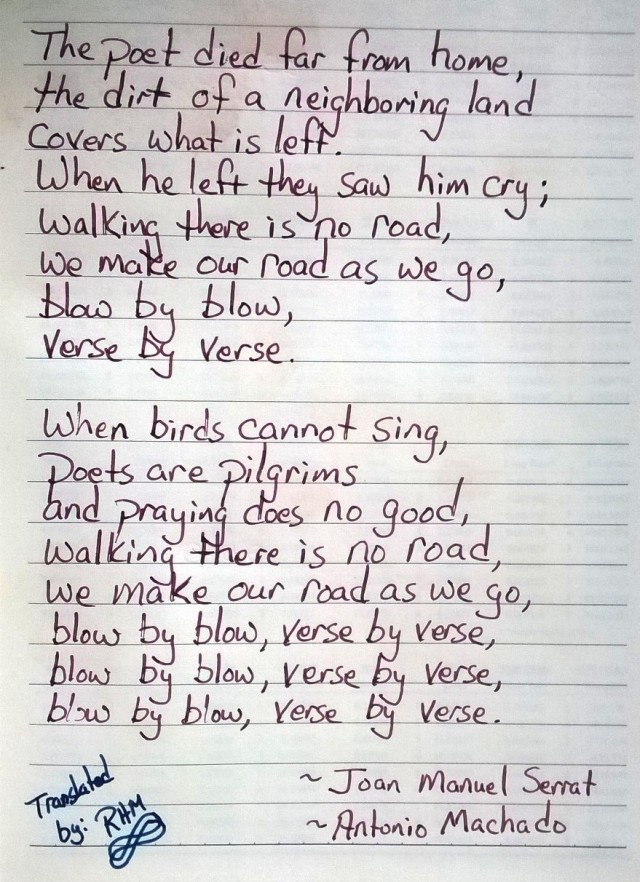 The poet died far from home,
the dirt of a neighboring land
Covers what is left.
When he left they saw him cry;
Walking there is no road,
We make our road as we go,
blow by blow,
Verse by verse.
When birds cannot sing,
Poets are pilgrims
and praying does no good,
Walking there is no road,
We make our road as we go,
blow by blow, verse by verse,
blow by blow, verse by verse,
blow by blow, verse by verse.
~ Joan Manuel Serrat
~ Antonio Machado
Translated
by: RHM